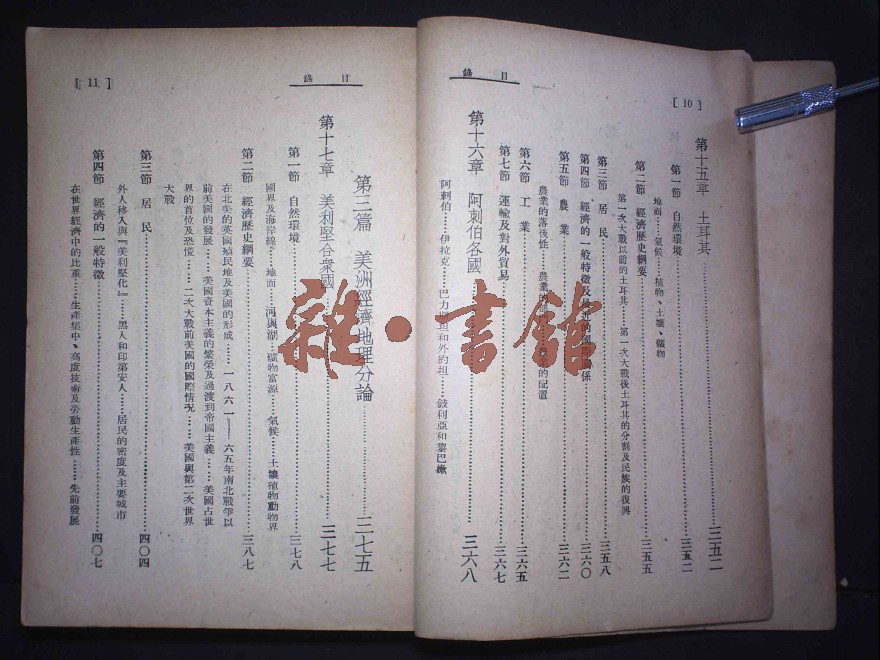 [10]
目 錄
第十五章 土耳其……三五二
第一節 自然環境……三五二
地面……氣候……植物、土壤、礦物
第二節 經濟歷史綱要……三五五
第一次大戰以前的土耳其……第一次大戰後土耳其的分割及民族的復興
第三節 居民……三五八
第四節 經濟的一般特徵及 的國際關係……三六〇
第五節 農業……三六二
農業的落後性……農業的 的配置
第六節 工業……三六五
第七節 運輸及對外貿易……三六七
第十六章 阿剌伯各國……三六八
阿剌伯……伊拉克……巴力斯坦和外約坦……敍利亞和黎巴嫩
目 錄
[11]
第三篇 美洲經濟地理分論……三七五
第十七章 美利堅合衆國……三七七
第一節 自然環境……三七八
國界及海岸線……地面……河與湖……礦物富源……氣候……土壤植物動物界
第二節 經濟歷史綱要……三八七
在北美的英國殖民地及美國的形成……一八六一——六五年南北戰爭以
前美國的發展……美國資本主義的繁榮及過渡到帝國主義……美國占世
界的首位及恐慌……二次大戰前美國的國際情况……美國與第二次世界
大戰
第三節 居民……四〇四
外人移入與『美利堅化』……黑人和印第安人……居民的密度及主要城市
第四節 經濟的一般特徵……四〇七
在世界經濟中的比重……生產集中、高度技術及勞動生產性……先前發展
雜·書館